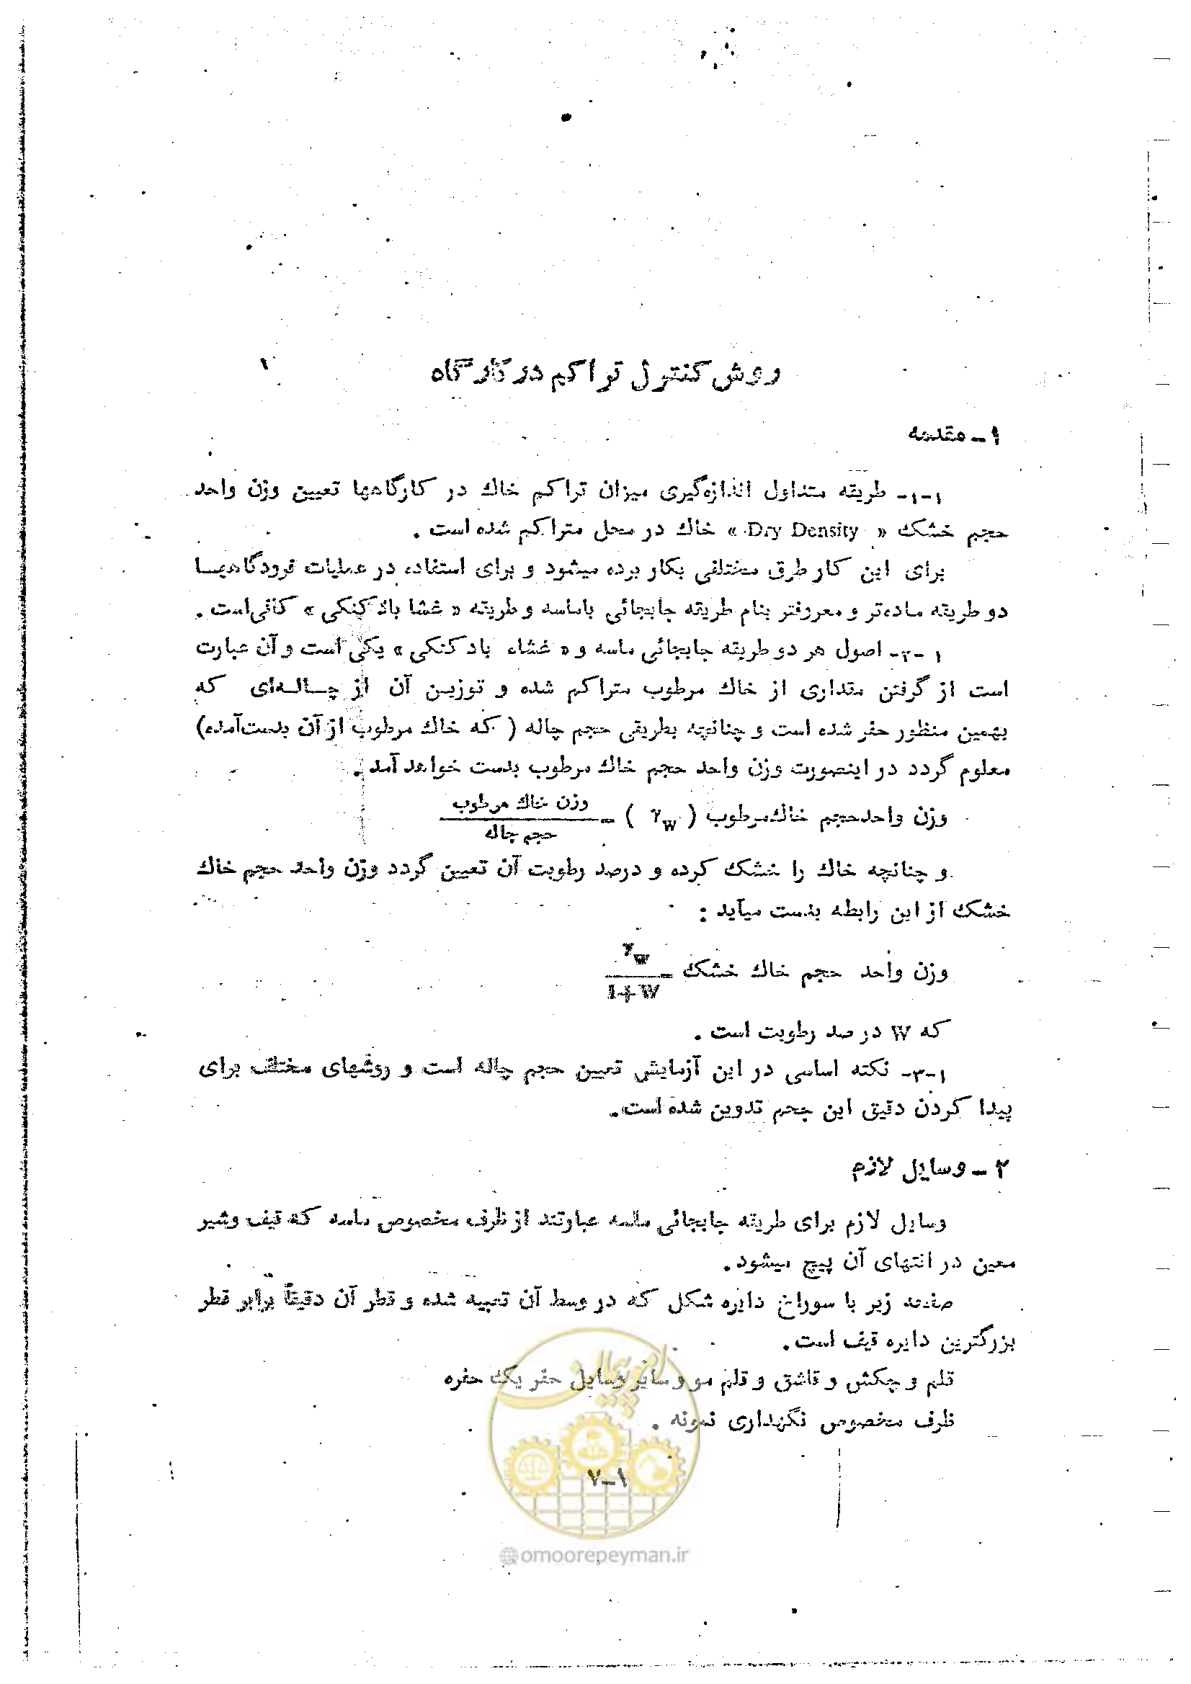 روش کنترل تراکم در کارگاه
۱ـ مقدمه
۱-۱- طریقه متداول اندازه‌گیری میزان تراکم خاک در کارگاهها تعیین وزن واحد
حجم خشک « Dry Density » خاک در محل متراکم شده است .
برای این کار طرق مختلفی بکار برده میشود و برای استفاده در عملیات فرودگاهها
دو طریقه ساده‌تر و معروفتر بنام طریقه جابجائی باماسه و طریقه « غشا باد کنکی » کافی‌است .
۱-۲- اصول هر دو طریقه جابجائی ماسه و « غشاء باد کنکی » یکی است و آن عبارت
است از گرفتن مقداری از خاک مرطوب متراکم شده و توزین آن از چاله‌ای که
بهمین منظور حفر شده است و چنانچه بطریقی حجم چاله ( که خاک مرطوب از آن بدست‌آمده)
معلوم گردد در اینصورت وزن واحد حجم خاک مرطوب بدست خواهد آمد .
وزن واحدحجم خاک‌مرطوب ( γw ) = وزن خاک مرطوب
حجم چاله
و چنانچه خاک را خشک کرده و درصد رطوبت آن تعیین گردد وزن واحد حجم خاک
خشک از این رابطه بدست میآید :
وزن واحد حجم خاک خشک = γw
1+W
که W در صد رطوبت است .
۱-۳- نکته اساسی در این آزمایش تعیین حجم چاله است و روشهای مختلف برای
پیدا کردن دقیق این حجم تدوین شده است.
۲ ـ وسایل لازم
وسایل لازم برای طریقه جابجائی ماسه عبارتند از ظرف مخصوص ماسه که قیف وشیر
معین در انتهای آن پیچ میشود.
صفحه زیر با سوراخ دایره شکل که در وسط آن تعبیه شده و قطر آن دقیقاً برابر قطر
بزرگترین دایره قیف است.
قلم و چکش و قاشق و قلم مو و سایر وسایل حفر یک حفره
ظرف مخصوص نگهداری نمونه .
۷ـ۱
امور پیمان
@omoorepeyman.ir